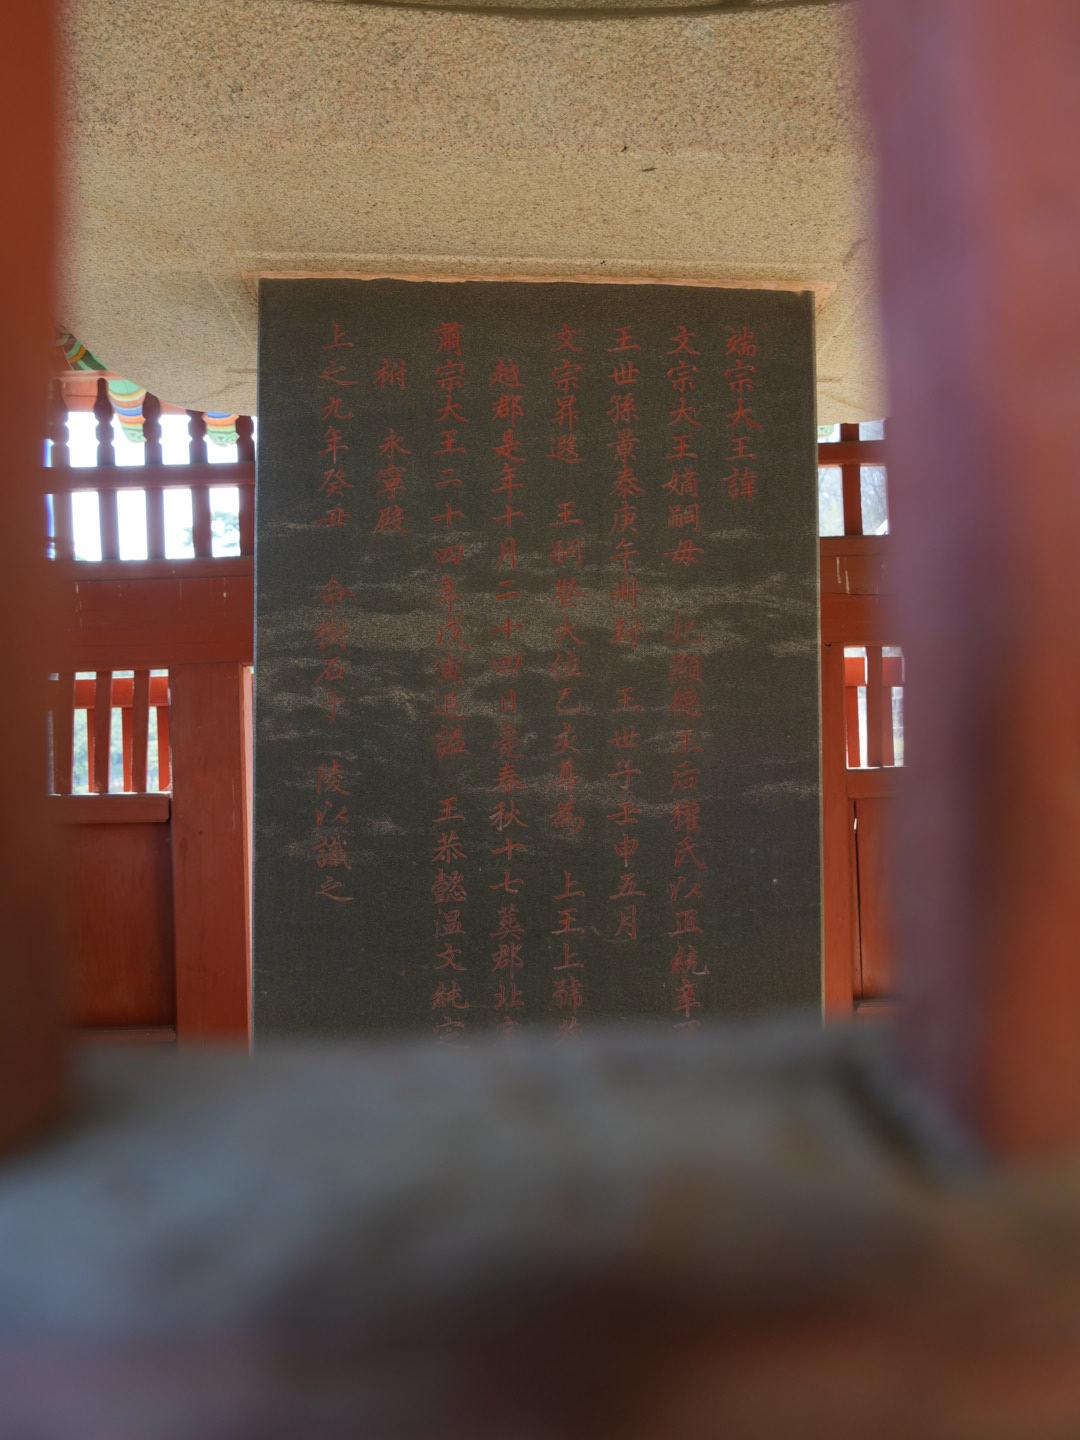 端宗大王諱
文宗大王嫡嗣母 妃顯德王后權氏以正統辛
王世孫景泰庚午冊封 王世子壬申五月
文宗昇遐 王嗣登大位乙亥尊爲 上王上號
越郡是年十月二十四日薨春秋十七葬郡北
肅宗大王二十四年戊寅追諡 王恭懿溫文純定
祔 永寧殿
上之九年癸丑 命樹石于 陵以識之